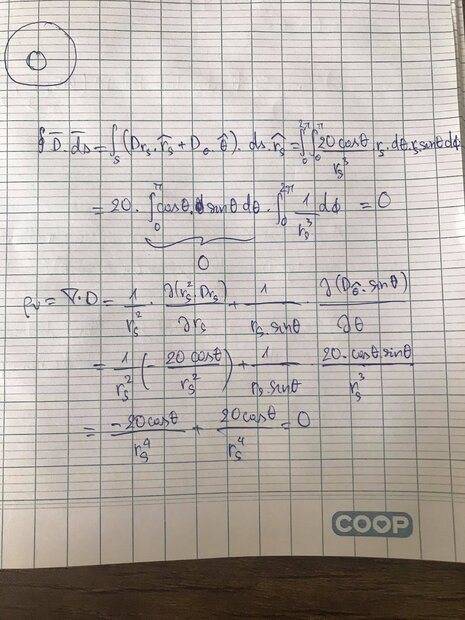 ∮ D̅ . d̅s = ∫ₛ (D_rₛ . r̂ₛ + D_θ . θ̂) . ds . r̂ₛ = ∫₀^2π ∫₀^π (20 cosθ / rₛ³) rₛ . dθ . rₛ sinθ dϕ
= 20 . ∫₀^π cosθ . sinθ dθ . ∫₀^2π (1 / rₛ³) dϕ = 0
0
ρᵥ = ∇ . D = (1 / rₛ²) . ∂(rₛ² . D_rₛ) / ∂rₛ + (1 / rₛ . sinθ) ∂(D_θ̂ . sinθ) / ∂θ
= (1 / rₛ²) (- 20 cosθ / rₛ²) + (1 / rₛ . sinθ) 20 . cosθ . sinθ / rₛ³
= -20 cosθ / rₛ⁴ + 20 cosθ / rₛ⁴ = 0
COOP